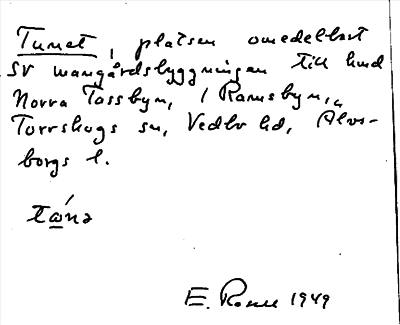 Tunet, platsen omedelbart
SV mangårdsbyggningen till hmd
Norra Tossbyn, i Ramsbyn,
Torrskogs sn, Vedbo hd, Älvs-
borgs l.
tώnə
E. 1949